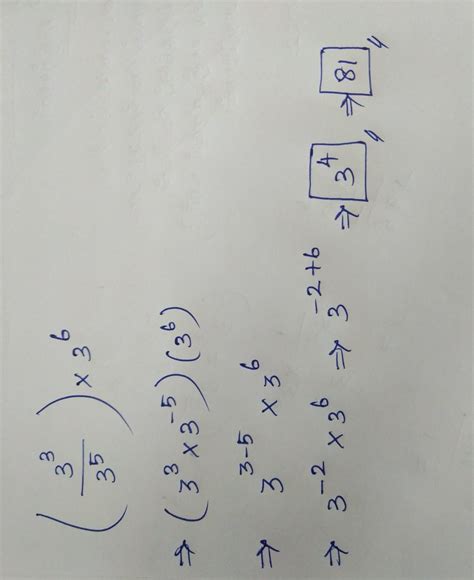 (3³/3⁵) × 3⁶
⇒ (3³ × 3⁻⁵) (3⁶)
⇒ 3³⁻⁵ × 3⁶
⇒ 3⁻² × 3⁶ ⇒ 3⁻²⁺⁶ ⇒ 3⁴ ⇒ 81